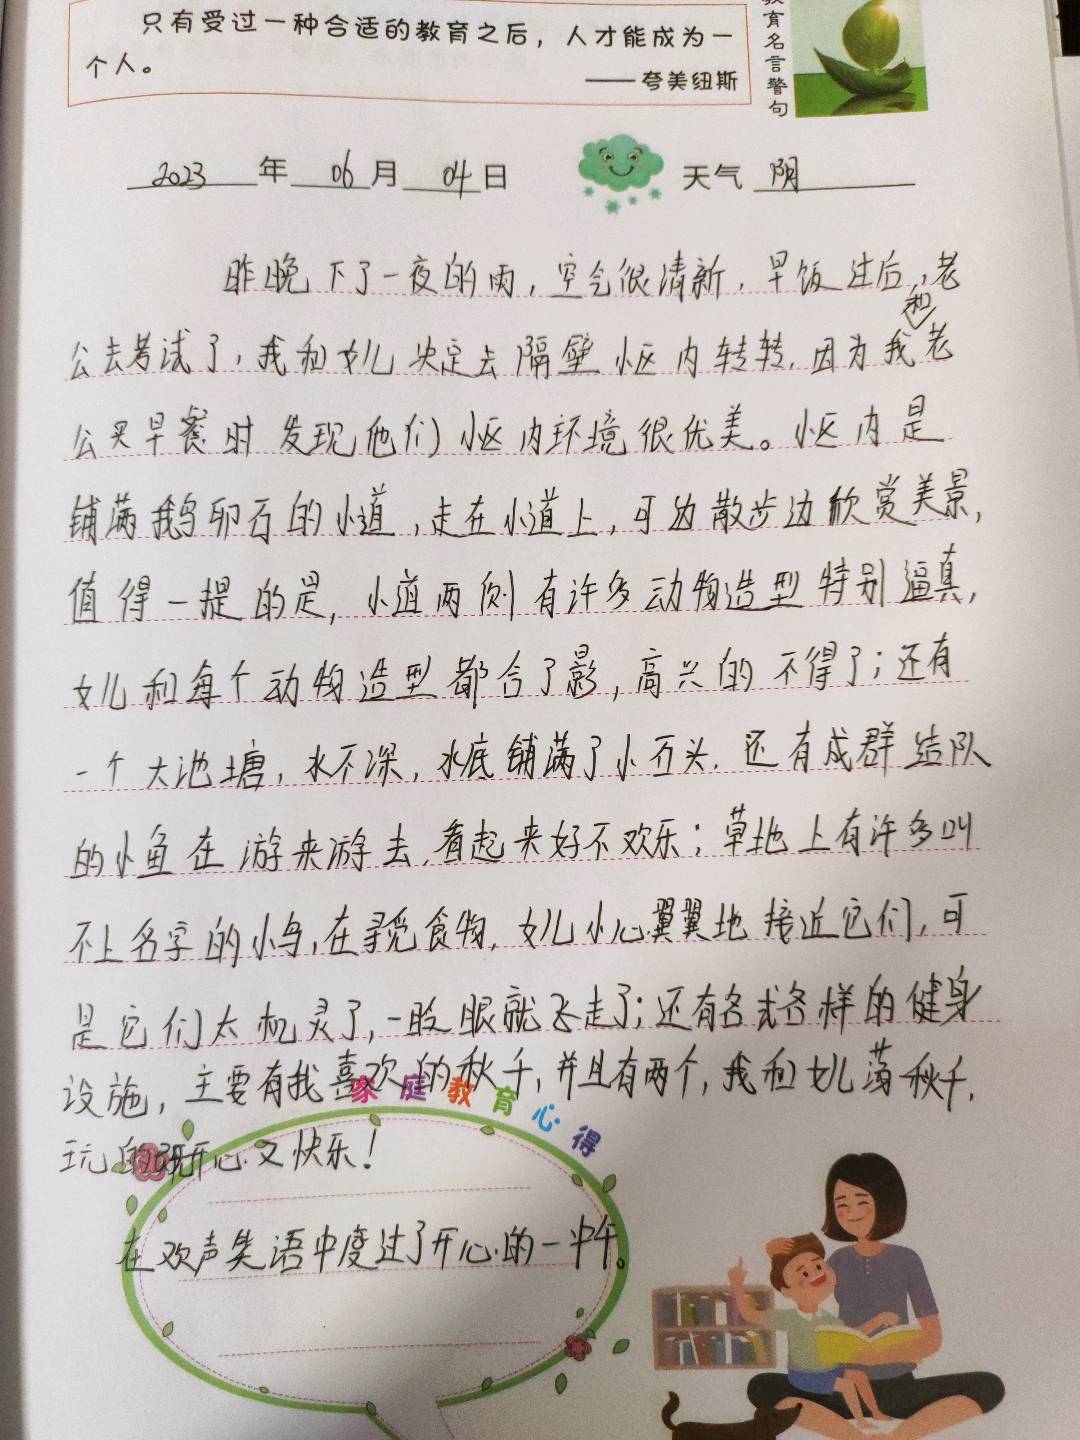 只有受过一种合适的教育之后，人才能成为一
个人。
——夸美纽斯
教育名言警句
2023年06月04日 天气 阴
昨晚下了一夜的雨，空气很清新，早饭过后，老
公去考试了，我和女儿决定去隔壁小区内转转，因为我和老
公买早餐时发现他们小区内环境很优美。小区内是
铺满鹅卵石的小道，走在小道上，可边散步边欣赏美景，
值得一提的是，小道两侧有许多动物造型特别逼真，
女儿和每个动物造型都合了影，高兴的不得了；还有
一个大池塘，水不深，水底铺满了小石头，还有成群结队
的小鱼在游来游去，看起来好不欢乐；草地上有许多叫
不上名字的小鸟，在寻觅食物，女儿小心翼翼地接近它们，可
是它们太机灵了，一眨眼就飞走了；还有各式各样的健身
设施，主要有我喜欢的秋千，并且有两个，我和女儿荡秋千，
家庭教育心得
玩的既开心又快乐！
在欢声笑语中度过了开心的一中午。